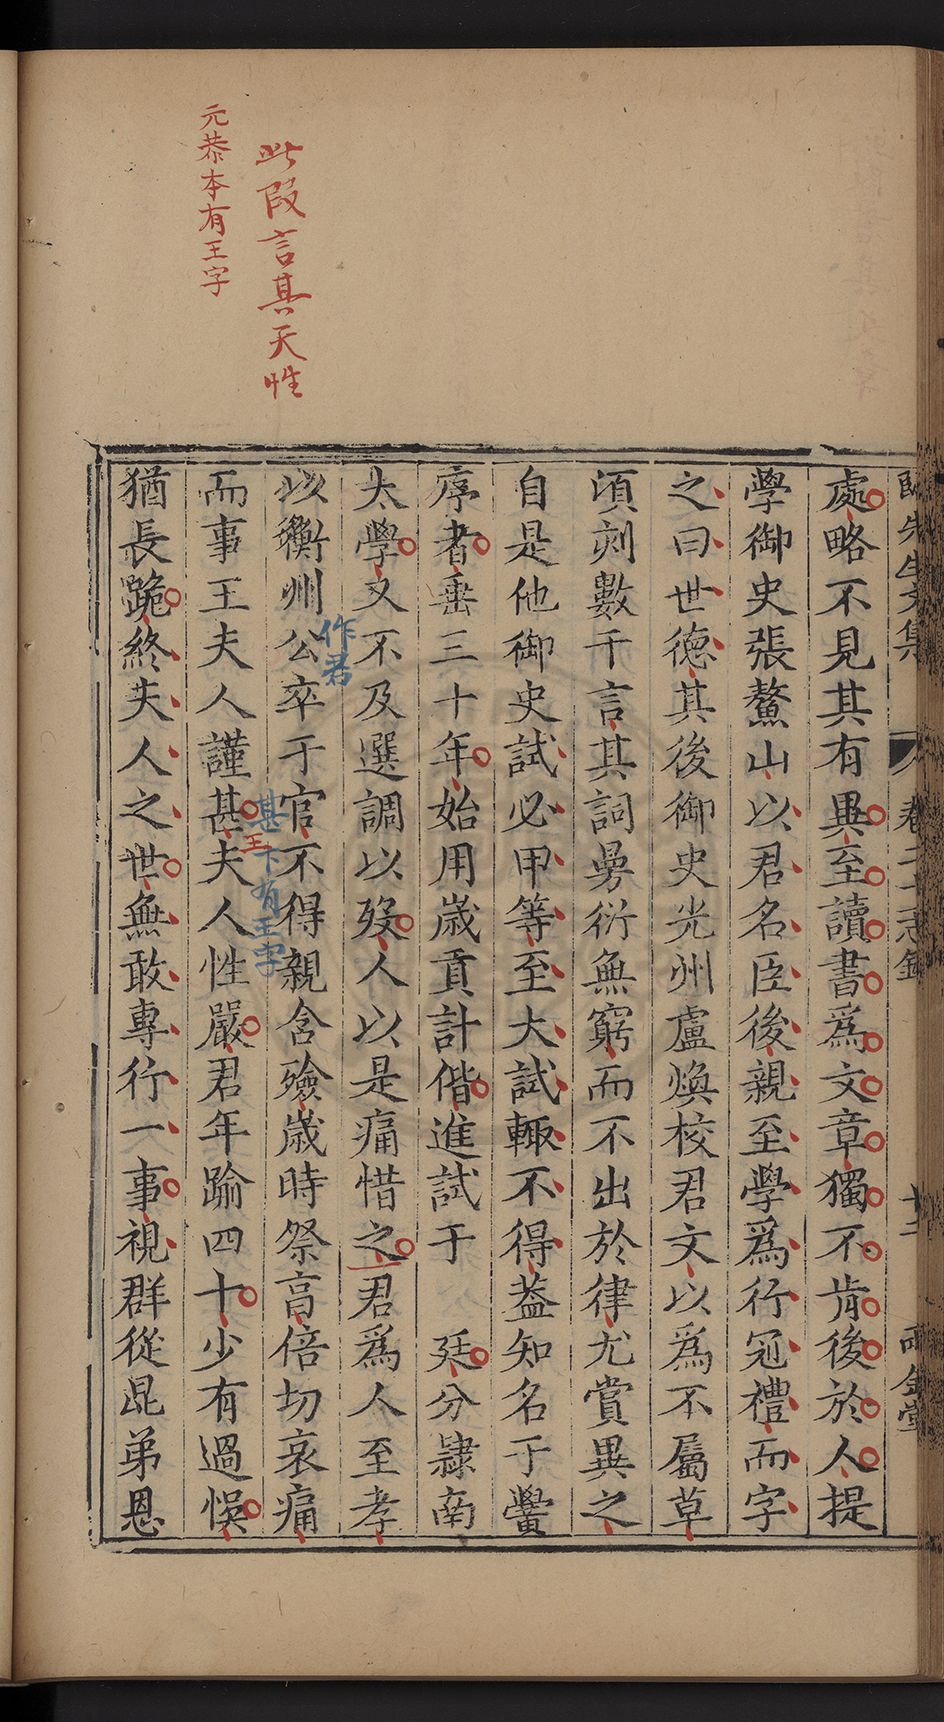 此段言其天性
元恭本有王字
處略不見其有異至讀書爲文章獨不肯後於人提
學御史張鰲山以君名臣後親至學爲行冠禮而字
之曰世德其後御史光州盧煥校君文以爲不屬草
頃刻數千言其詞曼衍無窮而不出於律尤賞異之
自是他御史試必甲等至大試輙不得葢知名于黌
序者垂三十年始用歳貢計偕進試于 廷分隷南
太學又不及選調以歿人以是痛惜之君爲人至孝
作君
以衡州公卒于官不得親含殮歳時祭享倍切哀痛
甚下有王字
而事王夫人謹甚王夫人性嚴君年踰四十少有過悞
猶長跪終夫人之世無敢專行一事視群從昆弟恩